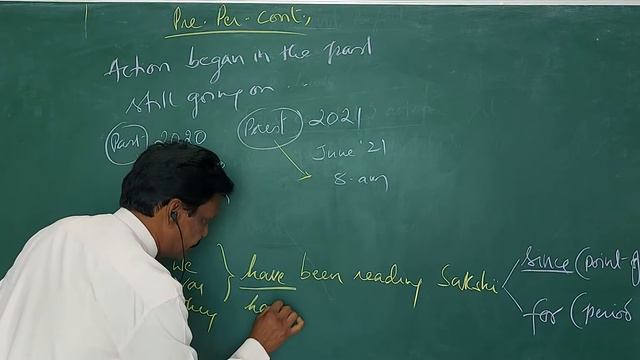 Pre. Per. Cont.,
Action began in the past
still going on ...
Past 2020
Prest 2021
June '21
8. am
we
they
have been reading Sakshi
ha
since (point-of
for (period